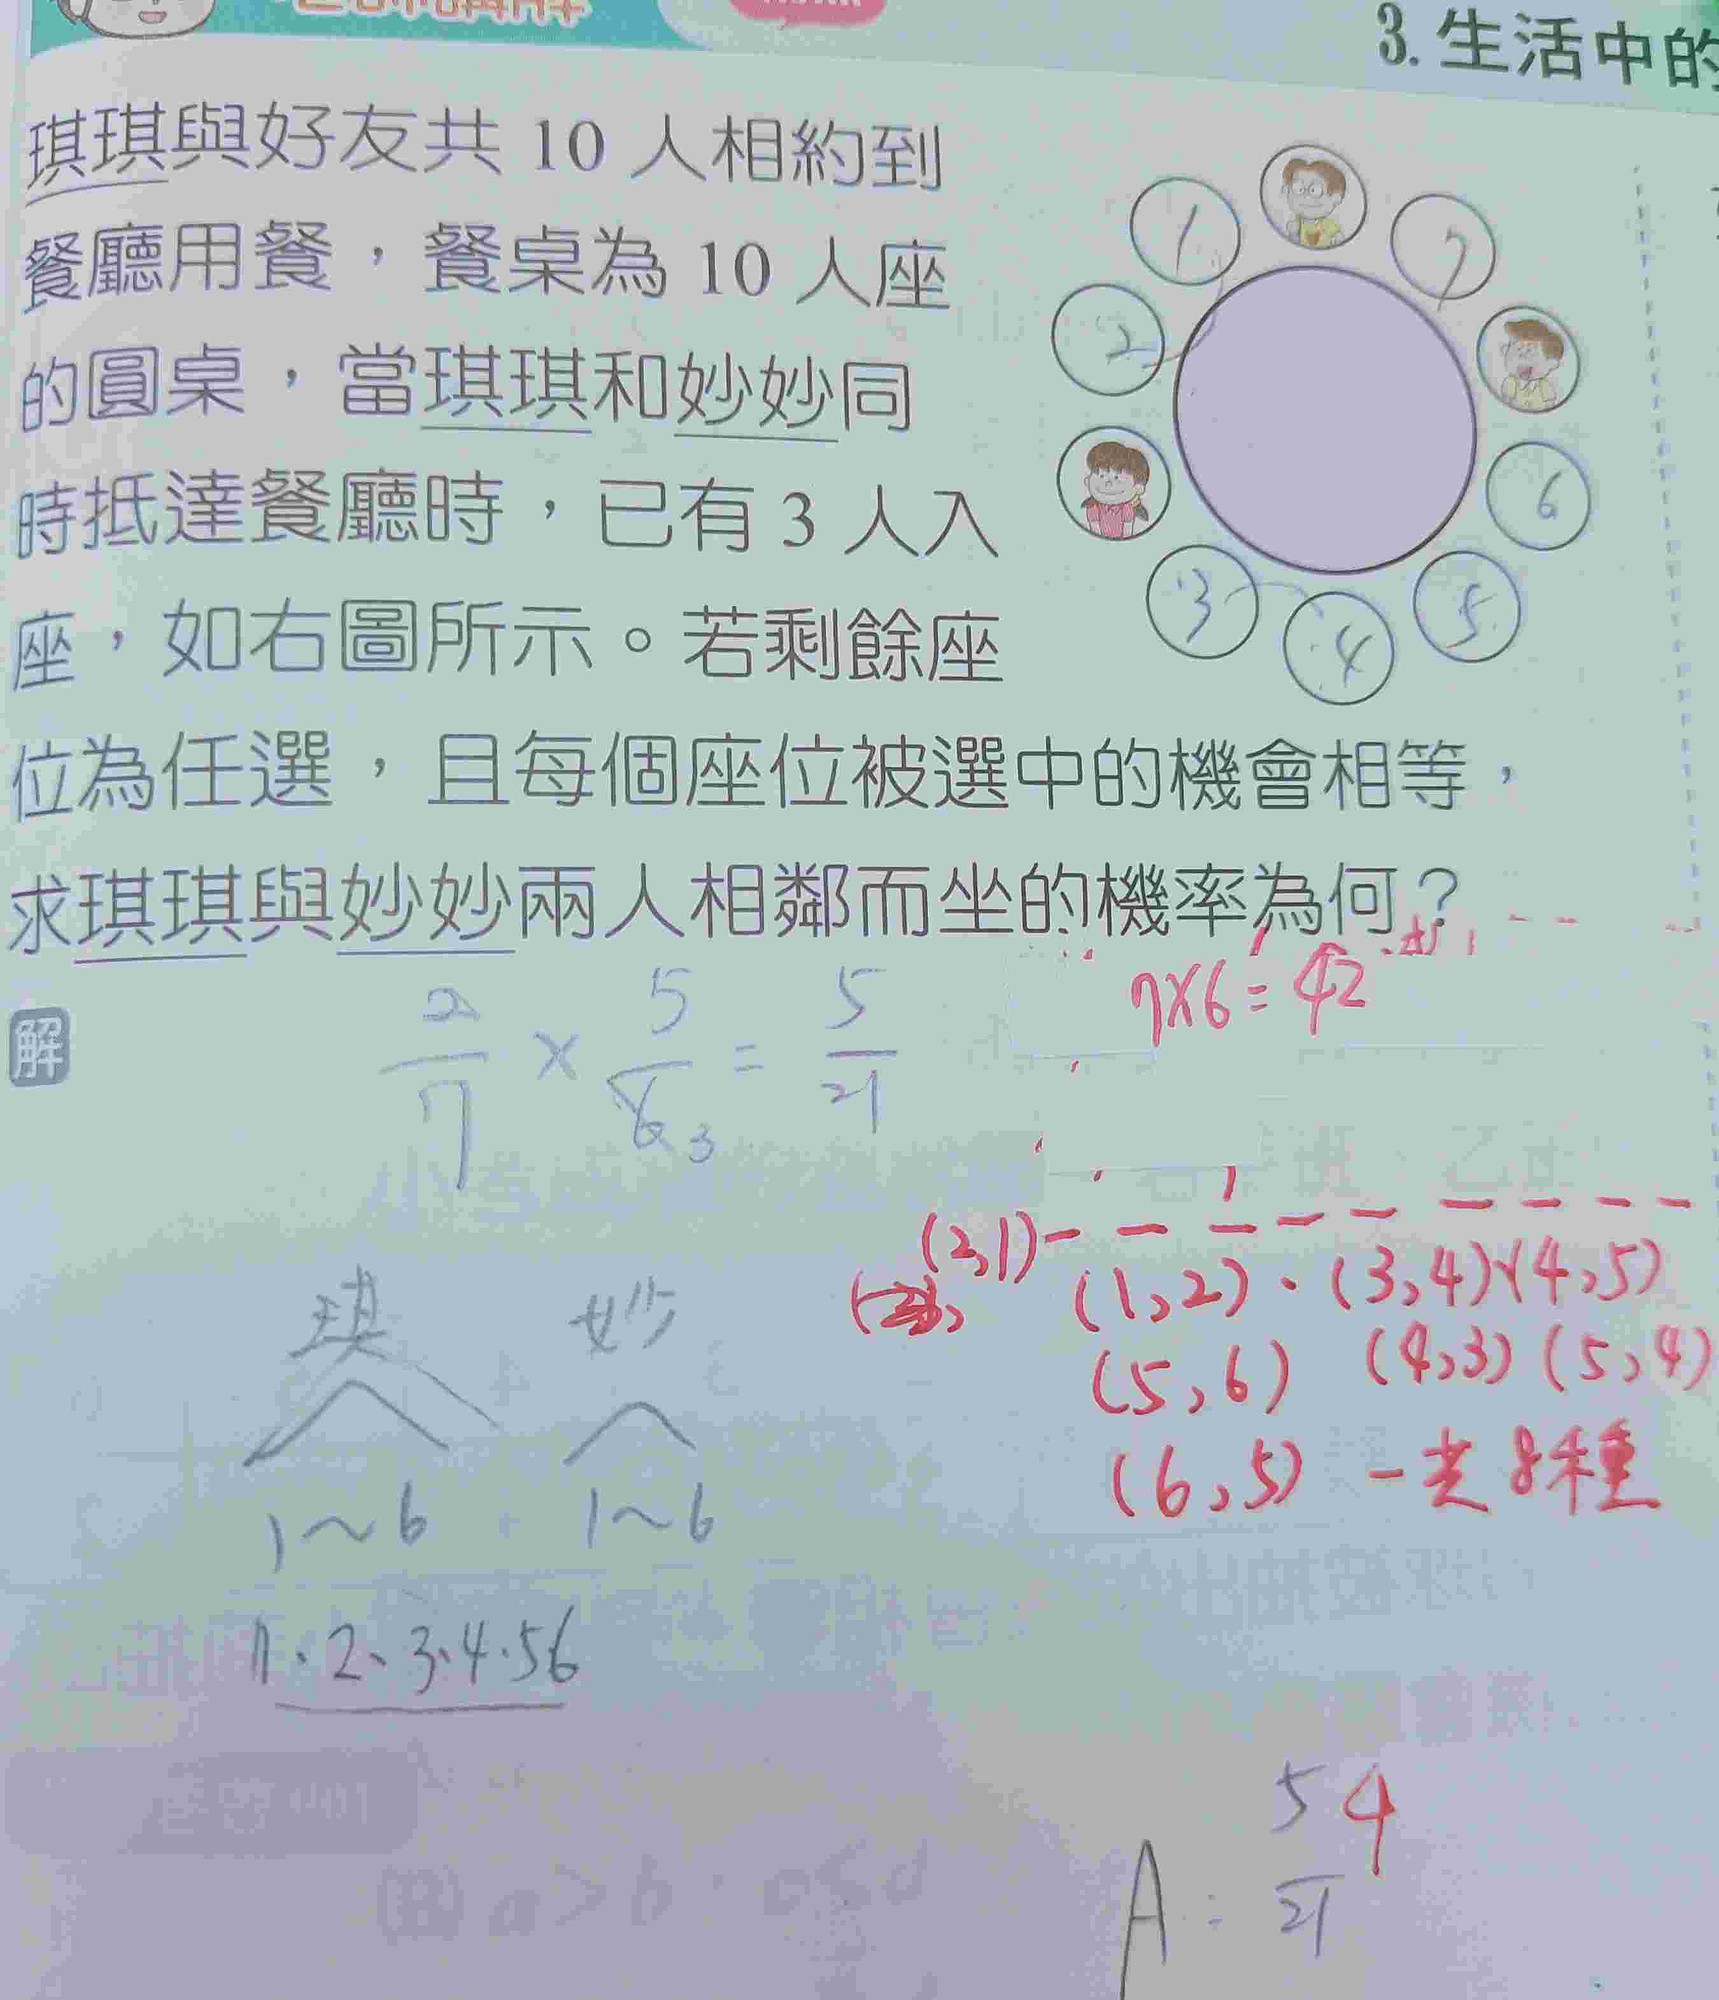 3. 生活中的
琪琪與好友共 10 人相約到
餐廳用餐，餐桌為 10 人座
的圓桌，當琪琪和妙妙同
時抵達餐廳時，已有 3 人入
座，如右圖所示。若剩餘座
位為任選，且每個座位被選中的機會相等，
求琪琪與妙妙兩人相鄰而坐的機率為何？
1
7
2
6
3
5
4
解
2/7 × 5/6 3 = 5/21
7×6=42
(2,1)
(1,2)、(3,4)、(4,5)
(5,6) (4,3) (5,4)
(6,5) 一共8種
琪 妙
1~6 1~6
1、2、3、4、5 6
A: 5 4/21